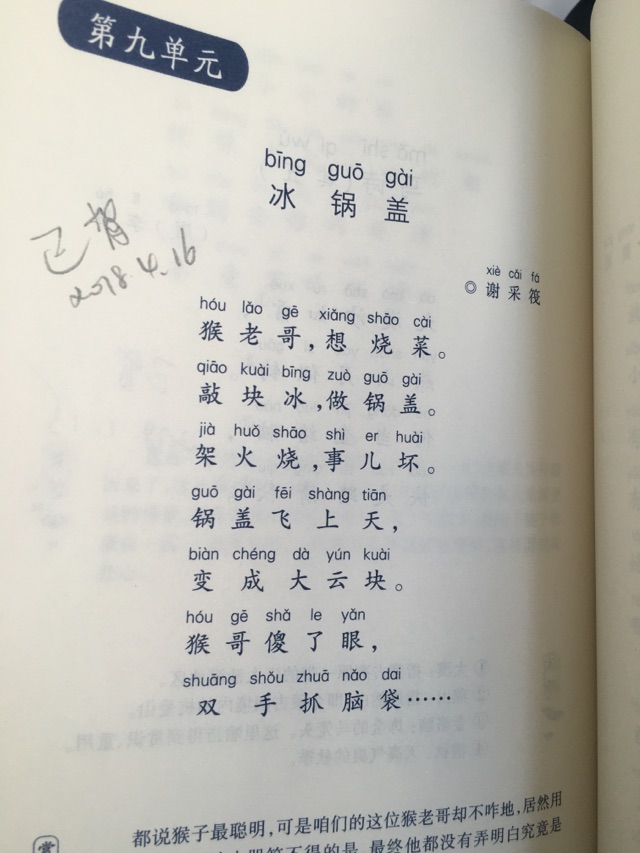 第九单元
bīng guō gài
冰锅盖
已背
2018.4.16
xiè cǎi fá
◎谢采筏
hóu lǎo gē xiǎng shāo cài
猴老哥，想烧菜。
qiāo kuài bīng zuò guō gài
敲块冰，做锅盖。
jià huǒ shāo shì er huài
架火烧，事儿坏。
guō gài fēi shàng tiān
锅盖飞上天，
biàn chéng dà yún kuài
变成大云块。
hóu gē shǎ le yǎn
猴哥傻了眼，
shuāng shǒu zhuā nǎo dai
双手抓脑袋……
都说猴子最聪明，可是咱们的这位猴老哥却不咋地，居然用
笑不得的是，最终他都没有弄明白究竟是
赏